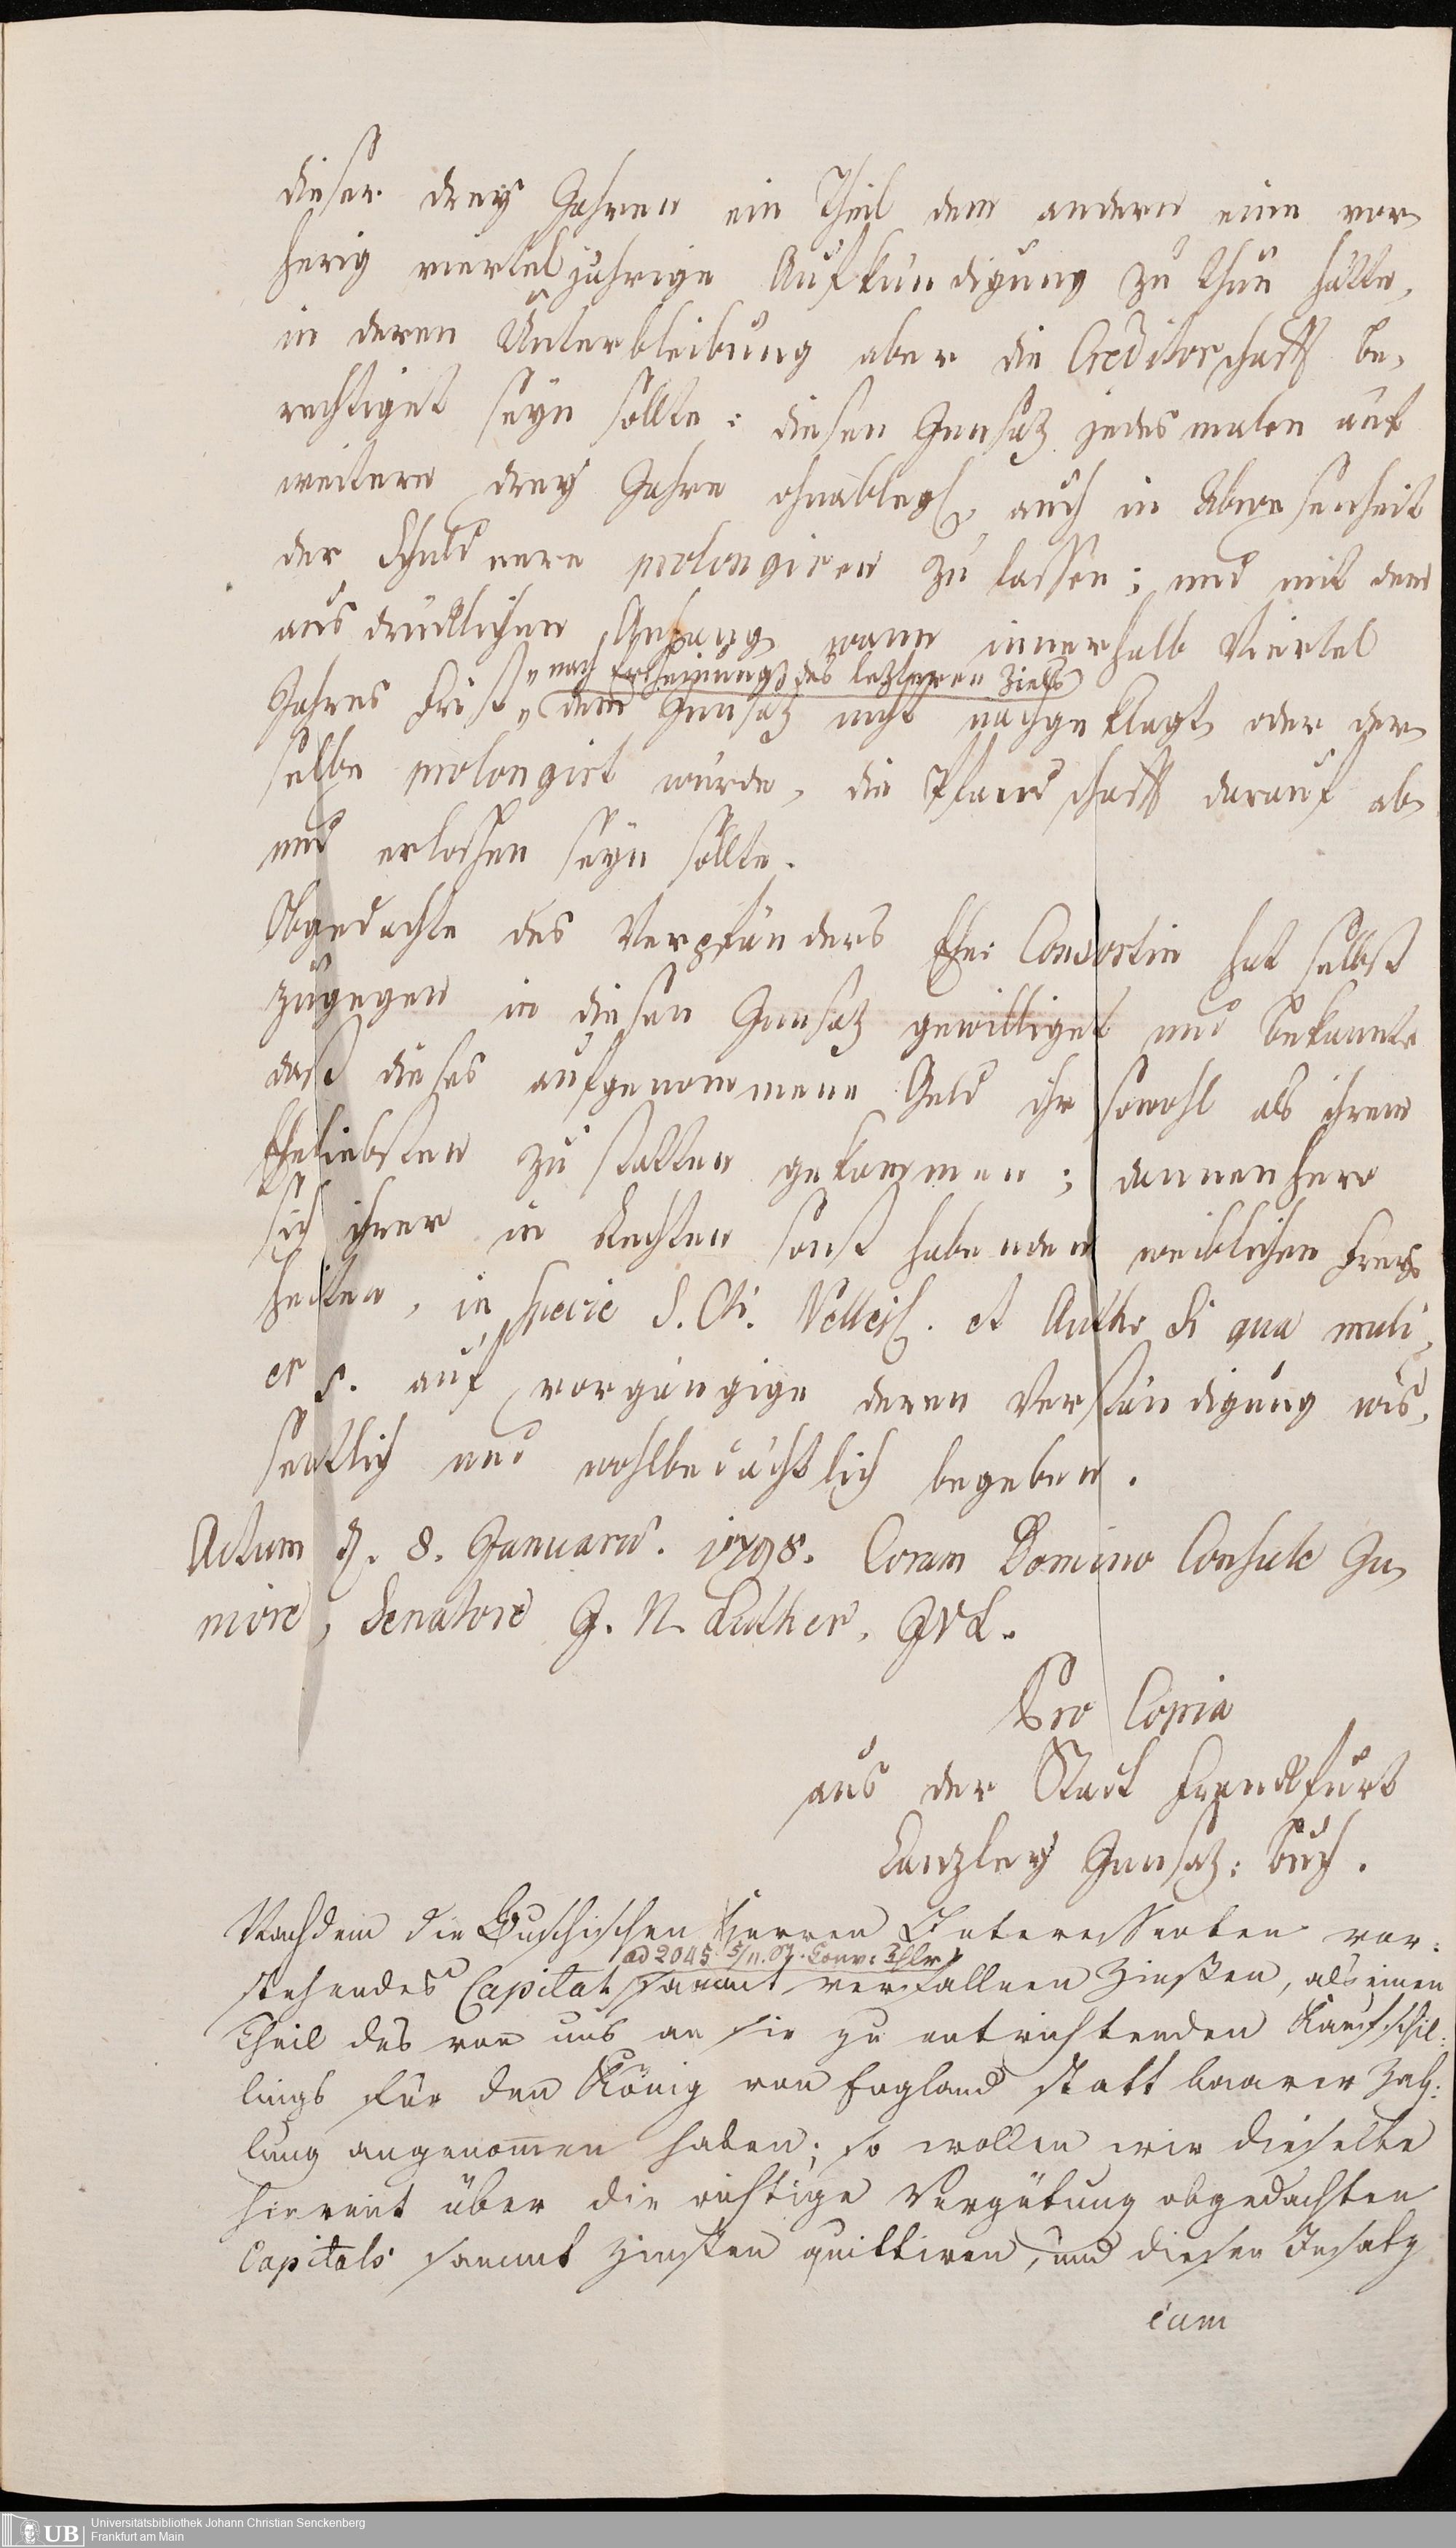 dieser drey Jahren ein Theil dem andern eine vor,
herig vierteljährige Aufkündigung zu thun hätte,
in deren Unterbleibung aber die Creditorschafft be,
rechtiget seyn sollte: diesen Innsatz jedesmalen auf
weitere drey Jahre ohnablegl. auch in Abwesenheit
der Schuldnere prolongiren zu lassen; und mit dem
ausdrücklichen Anhang, wann innerhalb Viertel
nach Erscheinung des lezteren Ziels
Jahres Frist, dem Innsatz nicht nachgeklagt, oder der,
selbe prolongirt würde, die Pfandschafft darauf ab,
und erloschen seyn sollte.
Obgedachte des Verpfänders Ehe: Consortin hat selbst
zugegen in diesen Innsatz gewilliget und bekannte
daß dieses aufgenommene Geld ihr sowohl als ihrem
Eheliebsten zu statten gekommen; dannenhero
sich ihrer in Rechten sonst habenden weiblichen Frey,
heiten, in specie S. Cti. Vellej. et Authe Si qua muli,
er p. auf vorgängige deren Verständigung wis,
sentlich und wohlbedächtlich begeben.
Actum d. 8. Januarii. 1798. Coram Domino Consule Ju,
niore, Senatore J. N. Luther, JVL.
Pro Copia
aus der Stadt Franckfurt
Canzley Innsatz: Buch.
Nachdem die Buschischen Herren Interessenten vor:
ad 2045 5/11. St. Conv: Thlr
stehendes Capital sammt verfallnen Zinßen, als einen
Theil des von uns an sie zu entrichtenden Kaufschil:
lings für den König von England statt baarer Zah:
lung angenomen haben; so wollen wir dieselbe
hiermit über die richtige Vergütung obgedachten
Capitals sammt Zinßen quittiren, und diesen Insatz
cum
Universitätsbibliothek Johann Christian Senckenberg
Frankfurt am Main
UB